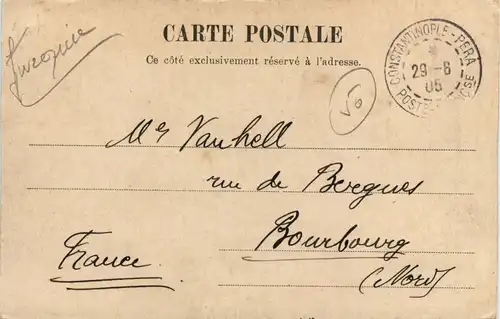 Turquie
CARTE POSTALE
Ce côté exclusivement réservé à l'adresse.
CONSTANTINOPLE-PERA
29-6
05
POSTE FRANÇAISE
50
Mr Vanhell
rue de Bergues
Bourbourg
France
(Nord)